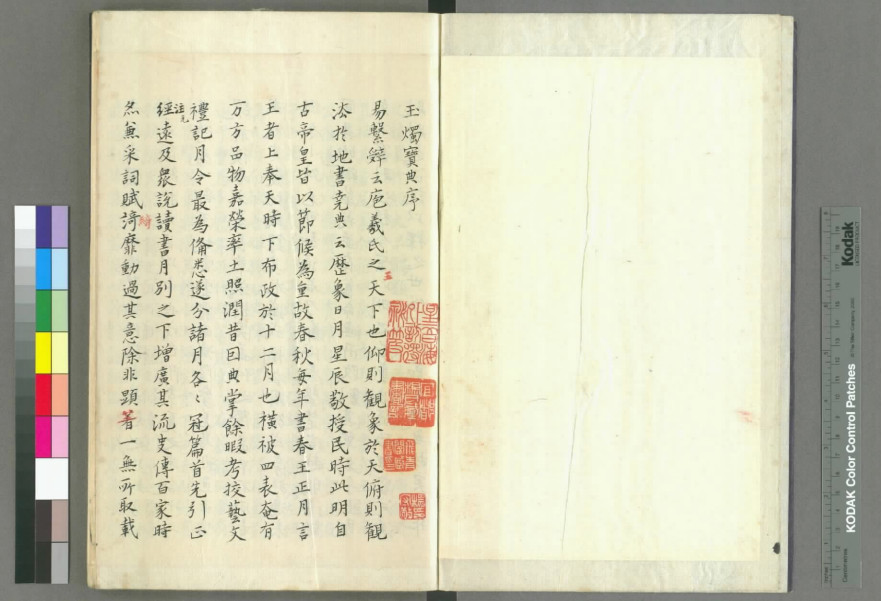 玉燭寶典序
易繫辭云庖羲氏之王天下也仰則觀象於天俯則觀
法於地書堯典云歷象日月星辰敬授民時此明自
古帝皇皆以節候為重故春秋每年書春王正月言
王者上奉天時下布政於十二月也橫被四表奄有
万方品物嘉榮率土照潤昔因典掌餘暇考挍藝文
禮記月令最為俻悉遂分諸月各〻冠篇首先引正
經注兄遠及衆說讀書月別之下增廣其流史傳百家時
時
亦兼采詞賦綺靡動過其意除非顯著一無所取載
Kodak
KODAK Color Control Patches